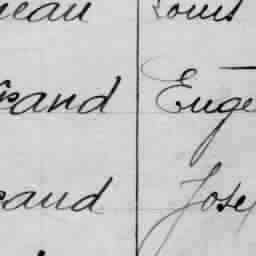 neau Louis
rand Euge
caud Jose